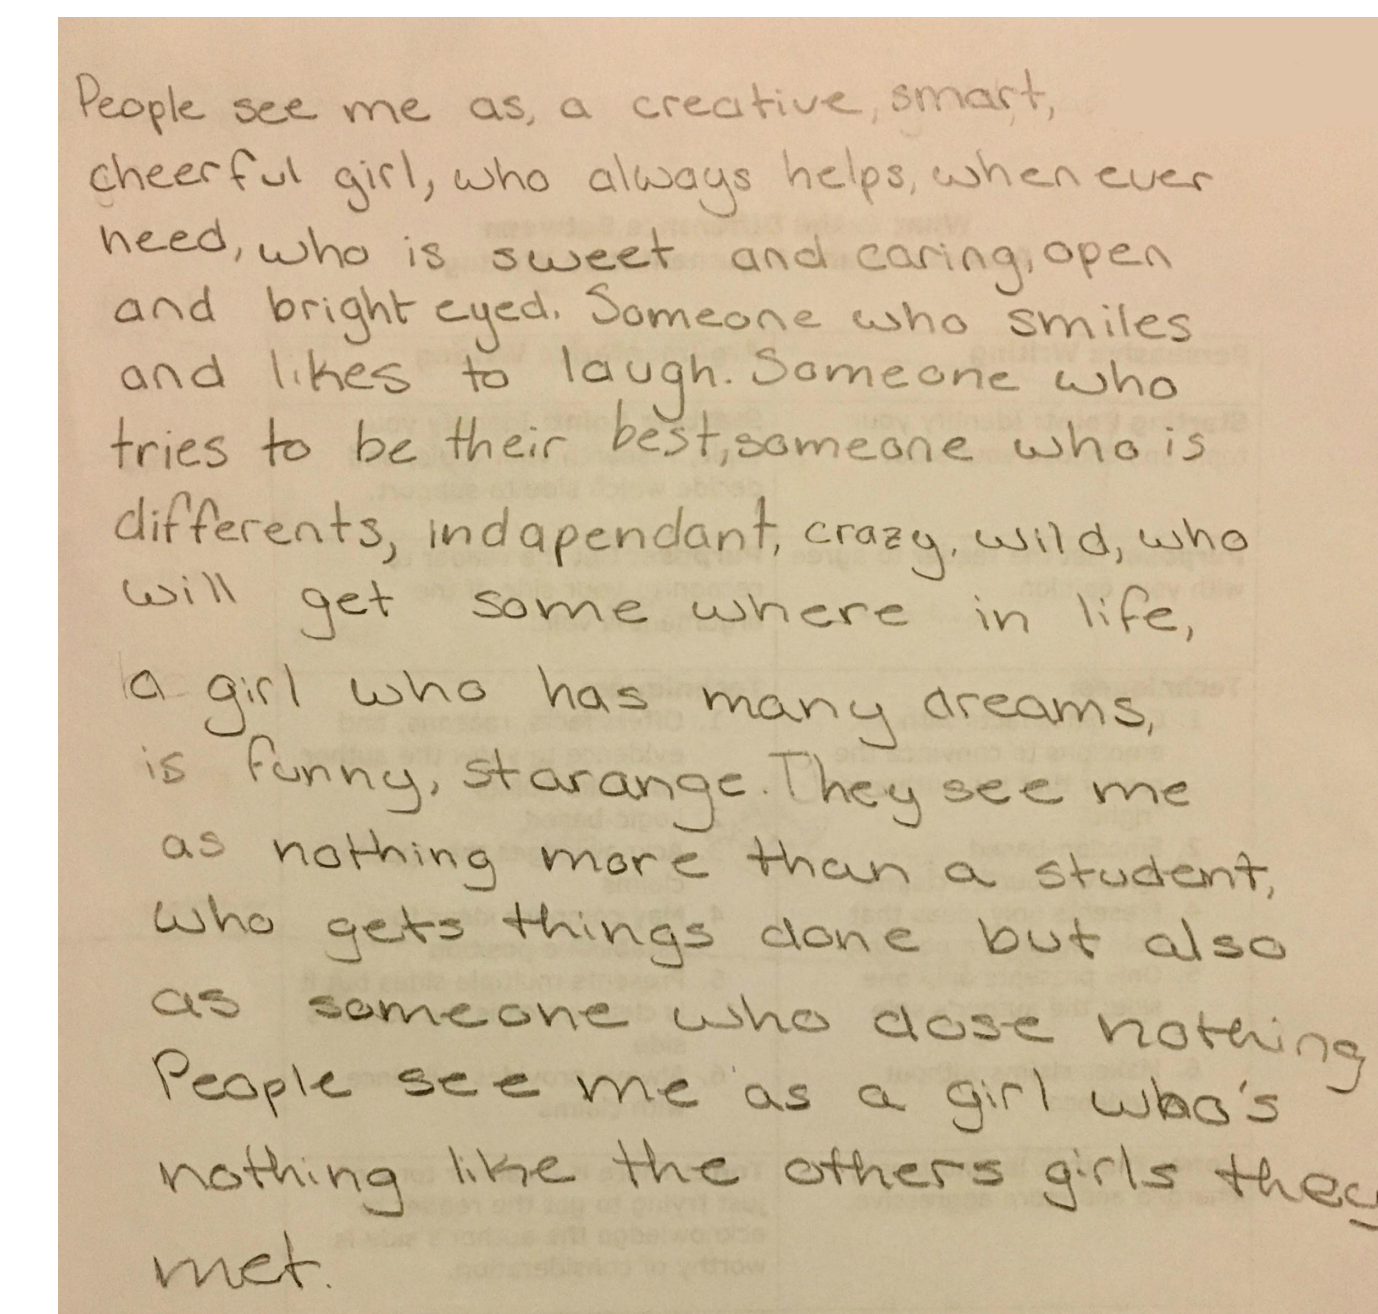 People see me as, a creative, smart,
cheerful girl, who always helps, when ever
need, who is sweet and caring, open
and bright eyed. Someone who smiles
and likes to laugh. Someone who
tries to be their best, someone who is
differents, indapendant, crazy, wild, who
will get some where in life,
a girl who has many dreams,
is funny, starange. They see me
as nothing more than a student,
who gets things done but also
as someone who dose nothing
People see me as a girl who's
nothing like the others girls they
met.